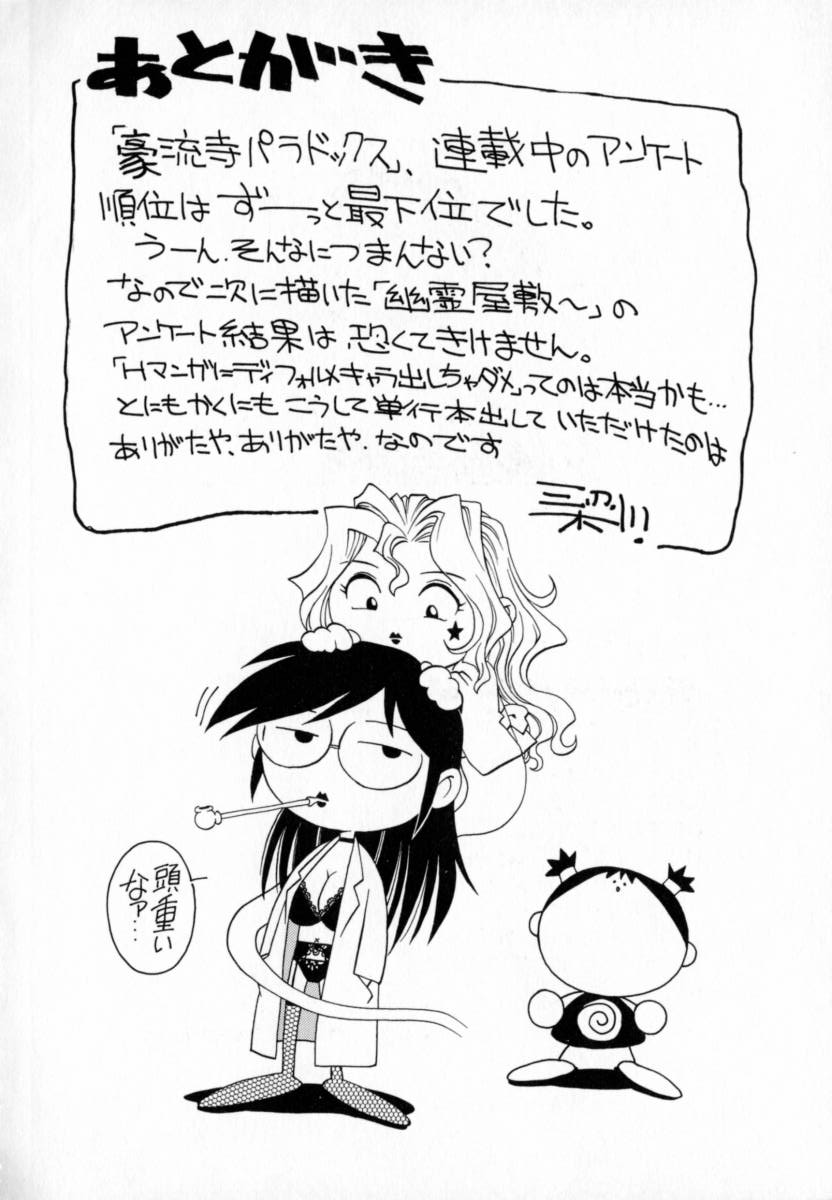 あとがき
「豪流寺パラドックス」、連載中のアンケート
順位は ずーーっと最下位でした。
うーん、そんなにつまんない?
なので二次に描いた「幽霊屋敷〜」の
アンケート結果は、恐くてきけません。
「Hマンガにディフォルメキャラ出しちゃダメ」ってのは本当かも…
とにもかくにも こうして単行本出して いただけたのは
ありがたや、ありがたや、なのです
頭重い
なァ…